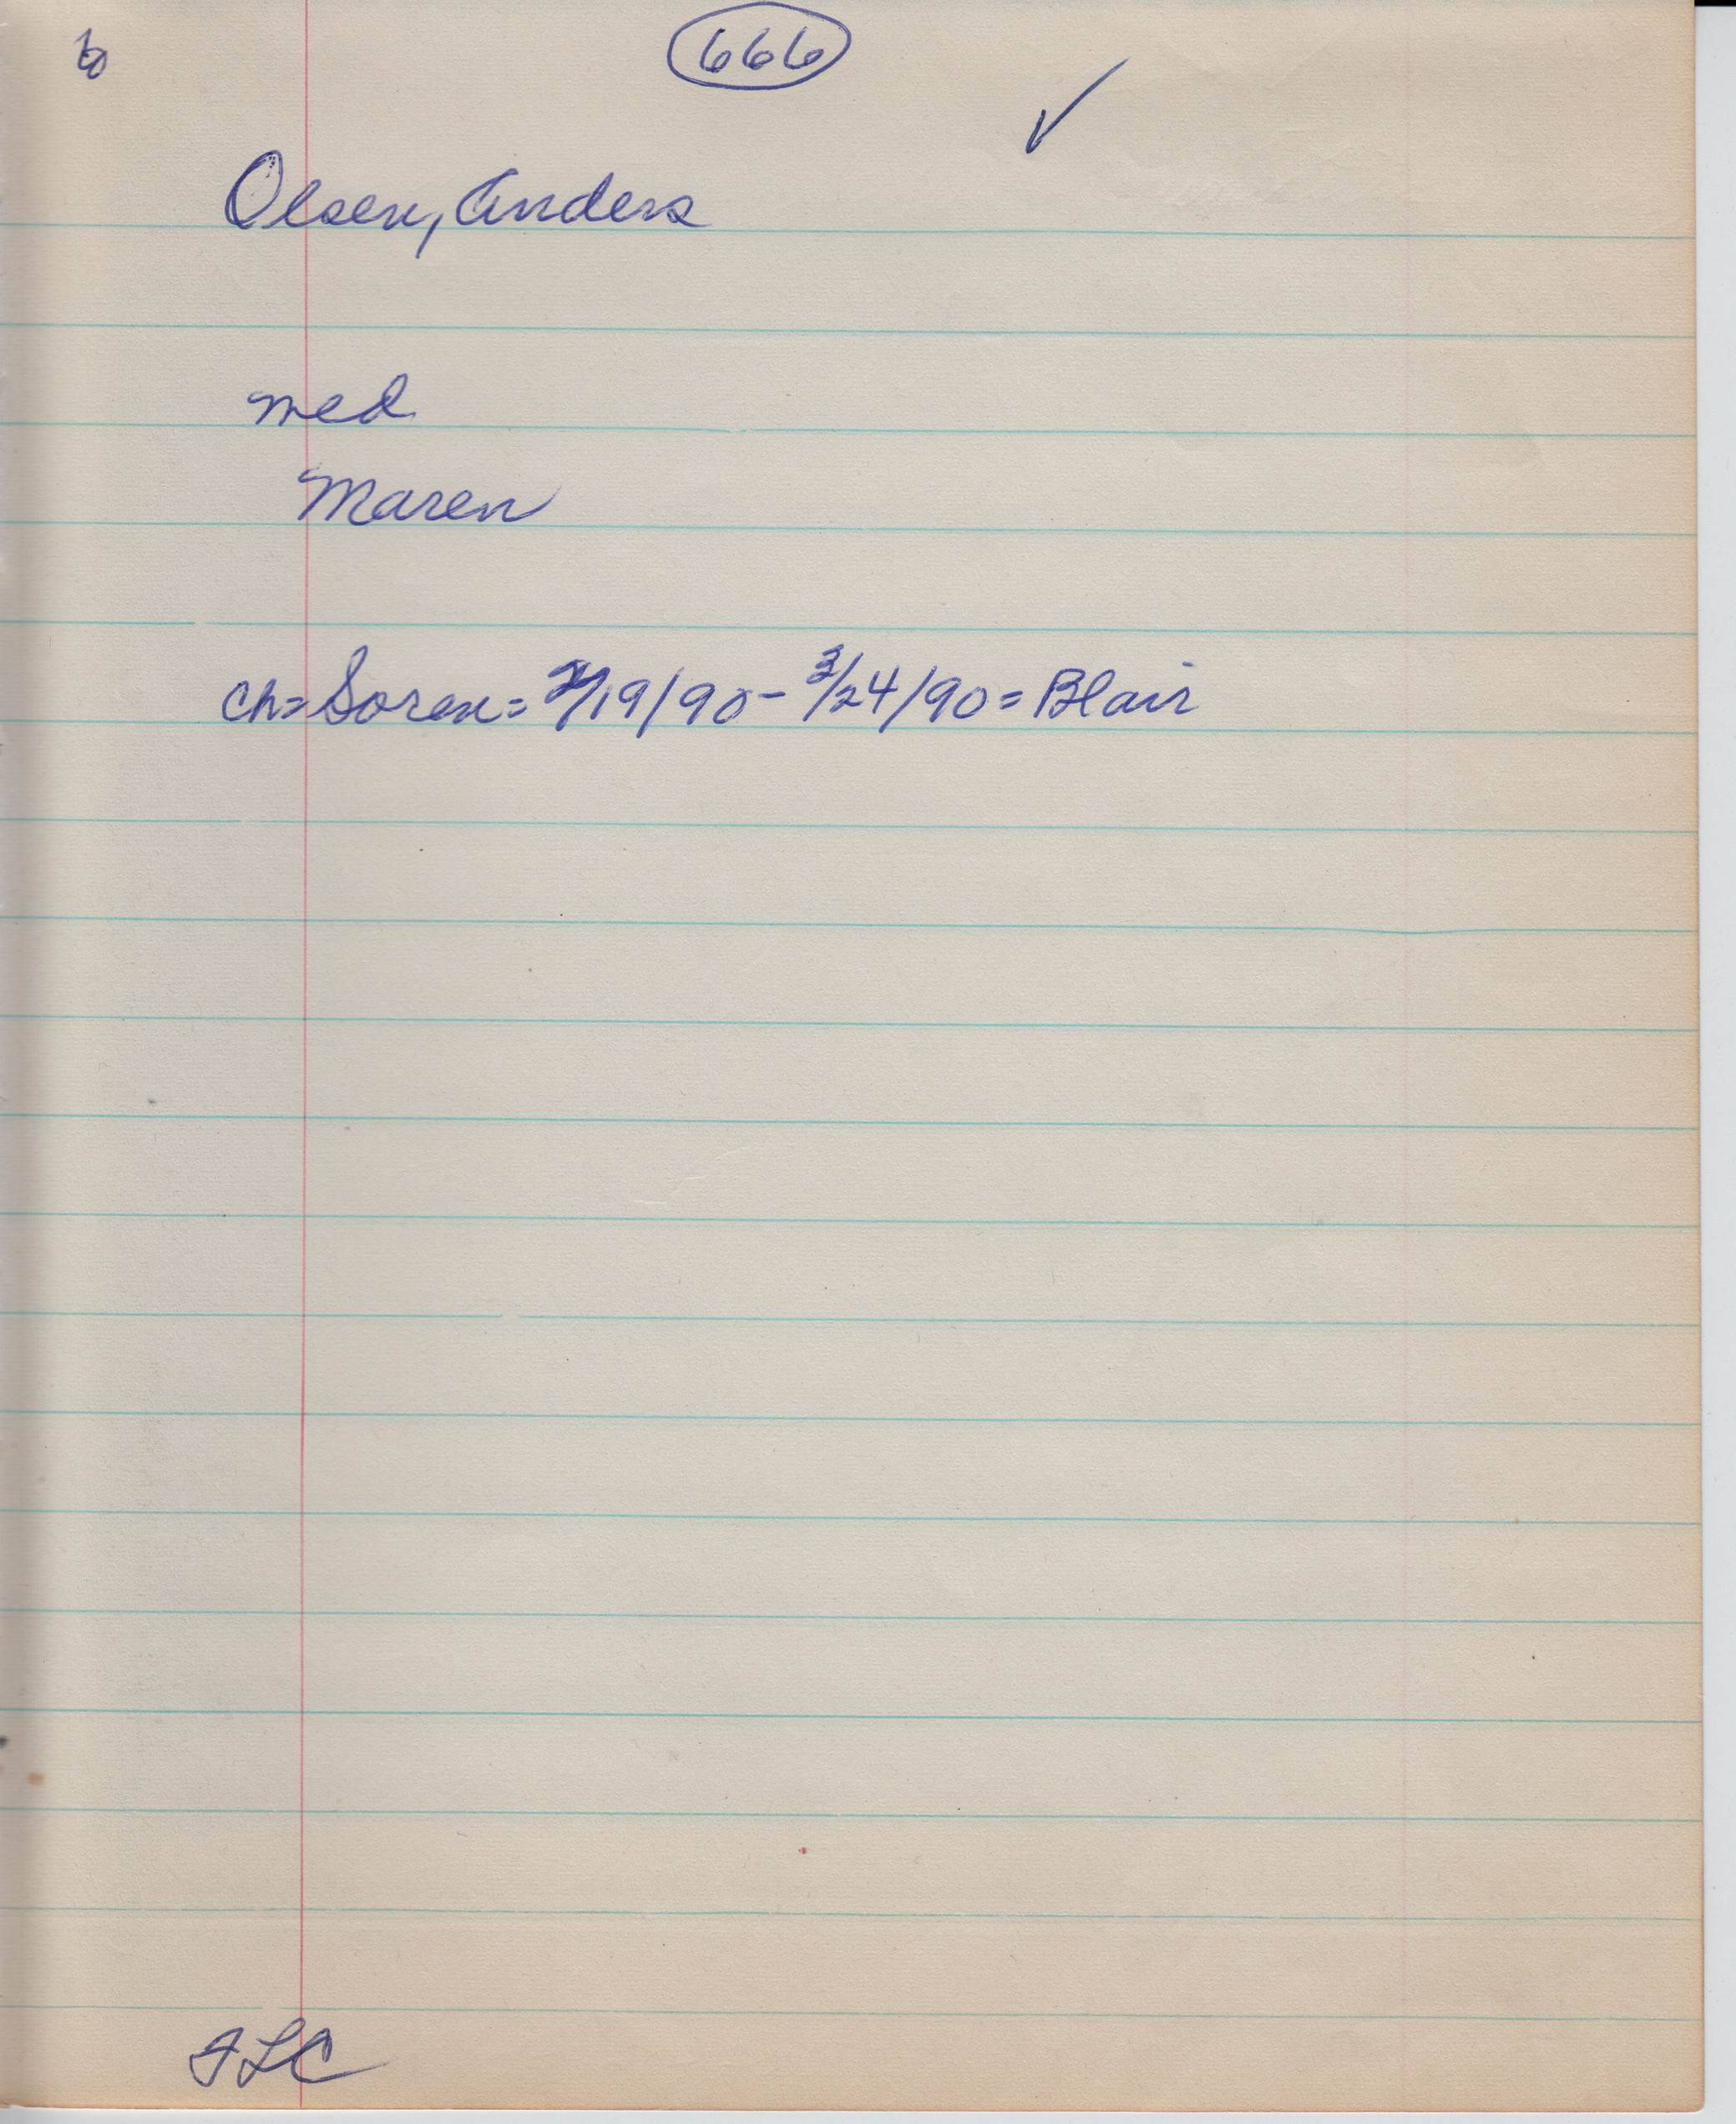 666
✓
Olsen, Anders
med
Maren
ch= Soren= 2/19/90- 3/24/90= Blair
FLC